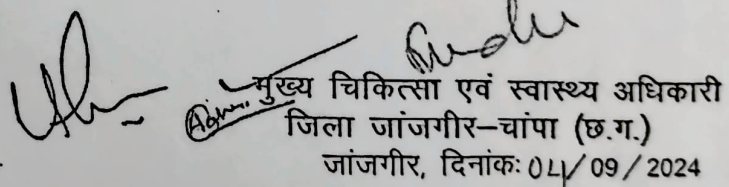 मुख्य चिकित्सा एवं स्वास्थ्य अधिकारी
जिला जांजगीर–चांपा (छ.ग.)
जांजगीर, दिनांक: 04/09/2024